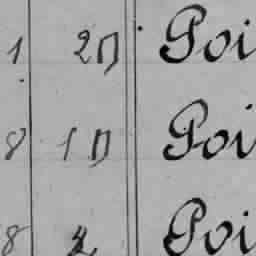 1 20 Poi
8 10 Poi
8 2 Poi